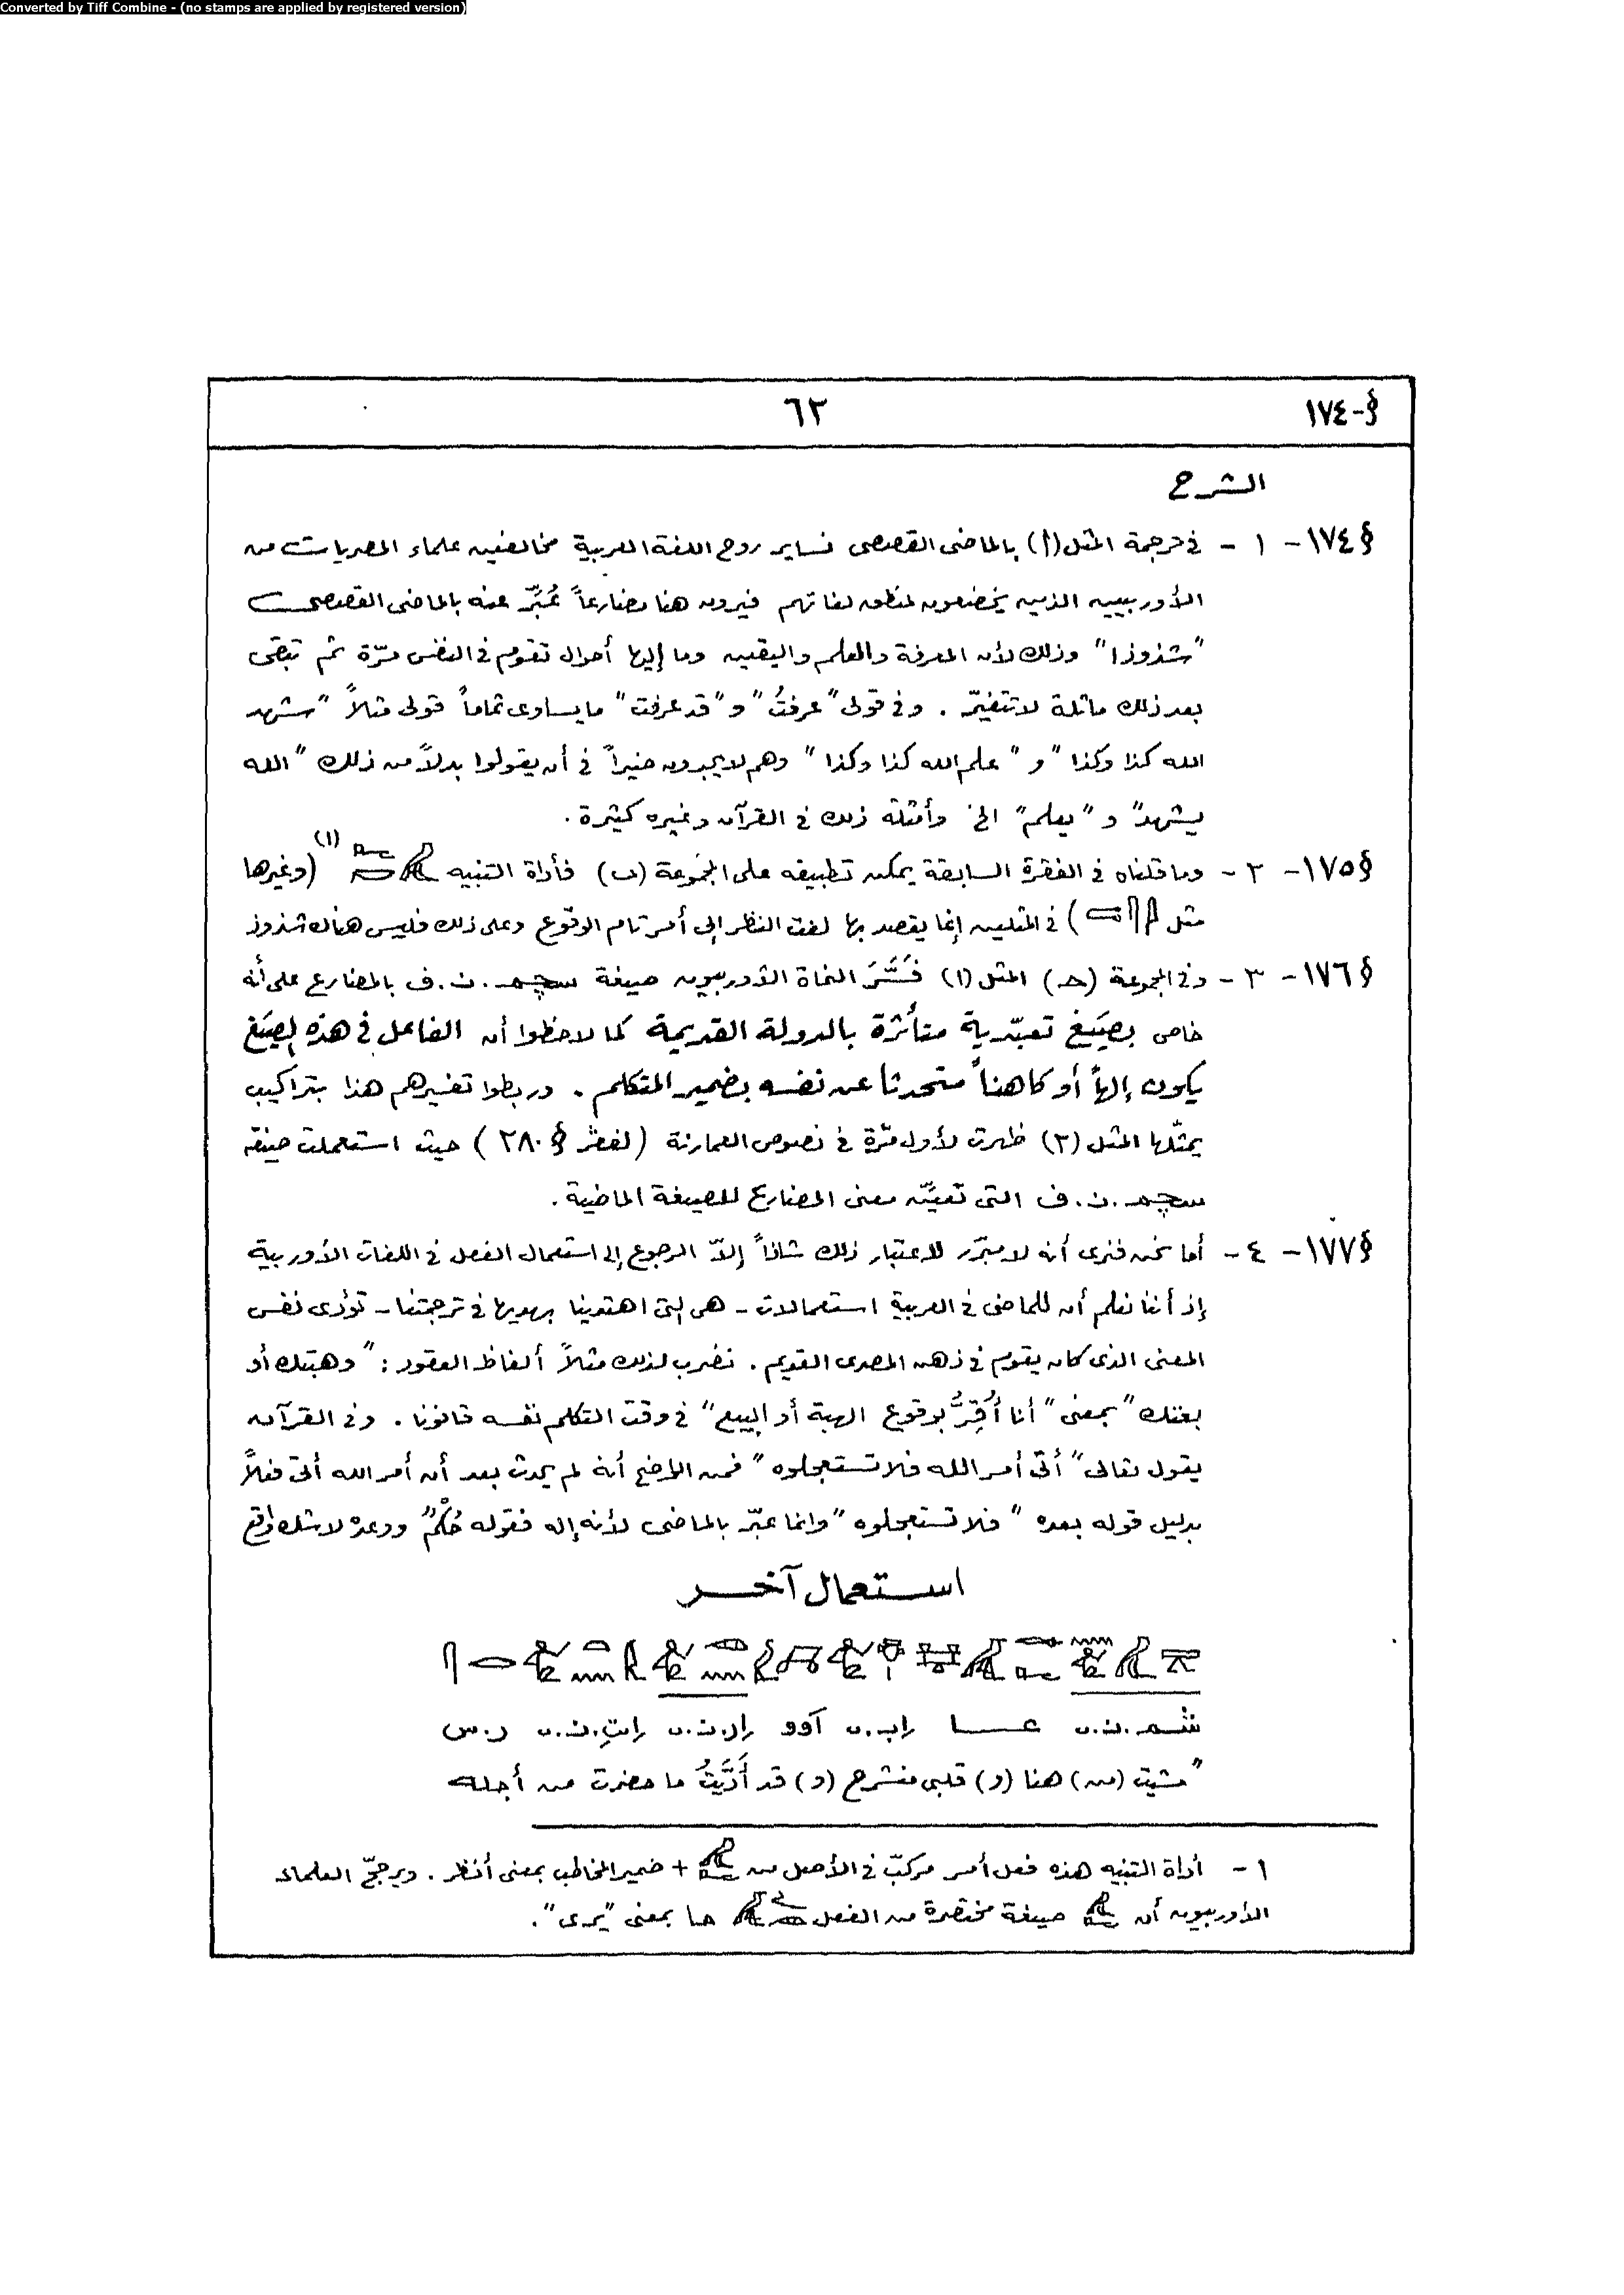 Converted by Tiff Combine - (no stamps are applied by registered version)
§-١٧٤
٦٢
الشرح
§١٧٤- ١ - فى ترجمة المثل (١) بالماضى القصصى نساير روح اللغة العربية مخالفين علماء المصريات من
الأوربيين الذين يخضعون لمنطق لغاتهم فيرون هنا مضارعاً عُبِّر عنه بالماضى القصصى
"شذوذا" وذلك لأن المعرفة والعلم واليقين وما إليها أحوال تقوم فى النفس مرّة ثم تبقى
بعد ذلك ماثلة لا تتغيّر . وفى قولى "عرفتُ" و "قد عرفت" ما يساوى تماماً قولى مثلاً "شهد
الله كذا وكذا" و "علم الله كذا وكذا" وهم لا يجدون ضيراً فى أن يقولوا بدلاً من ذلك "الله
يشهد" و "يعلم" الخ وأمثلة ذلك فى القرآن وغيره كثيرة .
§١٧٥- ٢ - وما قلناه فى الفقرة السابقة يمكن تطبيقه على المجموعة (ب) فأداة التنبيه (١) (وغيرها
مثل ) فى المثلين إنما يقصد بها لفت النظر إلى أمر تام الوقوع وعلى ذلك فليس هناك شذوذ
§١٧٦- ٣ - وفى المجموعة (حـ) المثل (١) فَسَّرَ النحاة الأوربيون صيغة سچم .ن.ف بالمضارع على أنه
خاص بصِيَغ تعبّدية متأثرة بالدولة القديمة كما لاحظوا أن الفاعل فى هذه الصِيَغ
يكون إلهاً أو كاهناً متحدثا عن نفسه بضمير المتكلم . وربطوا تفسيرهم هذا بتراكيب
يمثّلها المثل (٢) ظهرت لأول مرّة فى نصوص العمارنة (§ ٢٨٠) حيث استعملت صيغة
سچم .ن.ف التى تعيّن معنى المضارع للصيغة الماضية .
§١٧٧- ٤ - أما نحن فنرى أنه لا مبرّر لاعتبار ذلك شاذاً إلاّ الرجوع إلى استعمال الفعل فى اللغات الأوربية
إذ أننا نعلم أن للماضى فى العربية استعمالات - هى التى اهتدينا بهديها فى ترجمتنا - تؤدى نفس
المعنى الذى كان يقوم فى ذهن المصرى القديم . نضرب لذلك مثلاً ألفاظ العقود : "وهبتك أو
بعتك" بمعنى "أنا أُقِرُّ بوقوع الهبة أو البيع" فى وقت التكلم نفسه قانونا . وفى القرآن
يقول تعالى "أتى أمر الله فلا تستعجلوه" فمن الواضح أنه لم يحدث بعد أن أمر الله أتى فعلاً
بدليل قوله بعده "فلا تستعجلوه" وانما عبّر بالماضى لأنه إله فقوله حُكْمٌ ووعده لا شك واقع
استعمال آخر
شم .ن.ى عا راب.ى آوو رار.ن.ى رات.ن.ى ر.س
"مشيت (من) هنا (و) قلبى منشرح (و) قد أَدَّيْتُ ما حضرت من أجله
١ - أداة التنبيه هذه فعل أمر مركّب فى الأصل من + ضمير المخاطب بمعنى أنظر . ويرجّح العلماء
الأوربيون أن صيغة مختصرة من الفعل حا بمعنى "يرى".